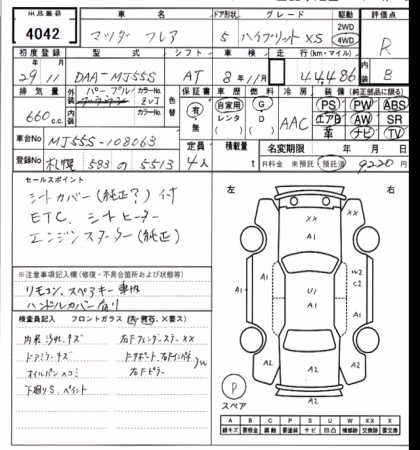 出品番号 車名 ドア形状 グレード 駆動 評価点
4042 マツダ フレア 5 ハイブリット XS 2WD 4WD R
初度登録 型式 シフト 車検 走行(km・マイル) 内装
29 年 11 月 DAA-MJ55S AT 8年11月 44486 B
排気量 外装 パープル カラーNo. 色替 保証書 車歴 燃料 冷房 装備(純正部品に限る)
660 c.c. 内装 カラーNo. 有・無 自家用 レンタ G D AAC PS PW ABS
エアB AW SR
革 ナビ TV
車台No MJ55S-108063 定員 積載量 名変期限 年 月 日
登録No 札幌 583 の 5513 4人 t R料金 未預託 預託済 9220円
セールスポイント
シートカバー(純正?)付
ETC、シートヒーター
エンジンスターター(純正)
※注意事項記入欄(修復・不具合箇所および状態等)
リモコン、スペアキー車内
ハンドルカバー有り
検査員記入 フロントガラス(A・飛石、X要ス)
内装汚れ、キズ 右Fフェンダーステー XX
ドアミラーキズ
オイルパンヘコミ 右Fピラー
下廻りS、ペイント
左 右
XX
A1
A1 A1 W2
C2
U1
A1 A1
A1
A2 A2
A2
P
スペア
A B C P S U W X XX
線キズ 要板金 腐蝕 要塗装 サビ 凹凸 補修跡 要交換 交換跡